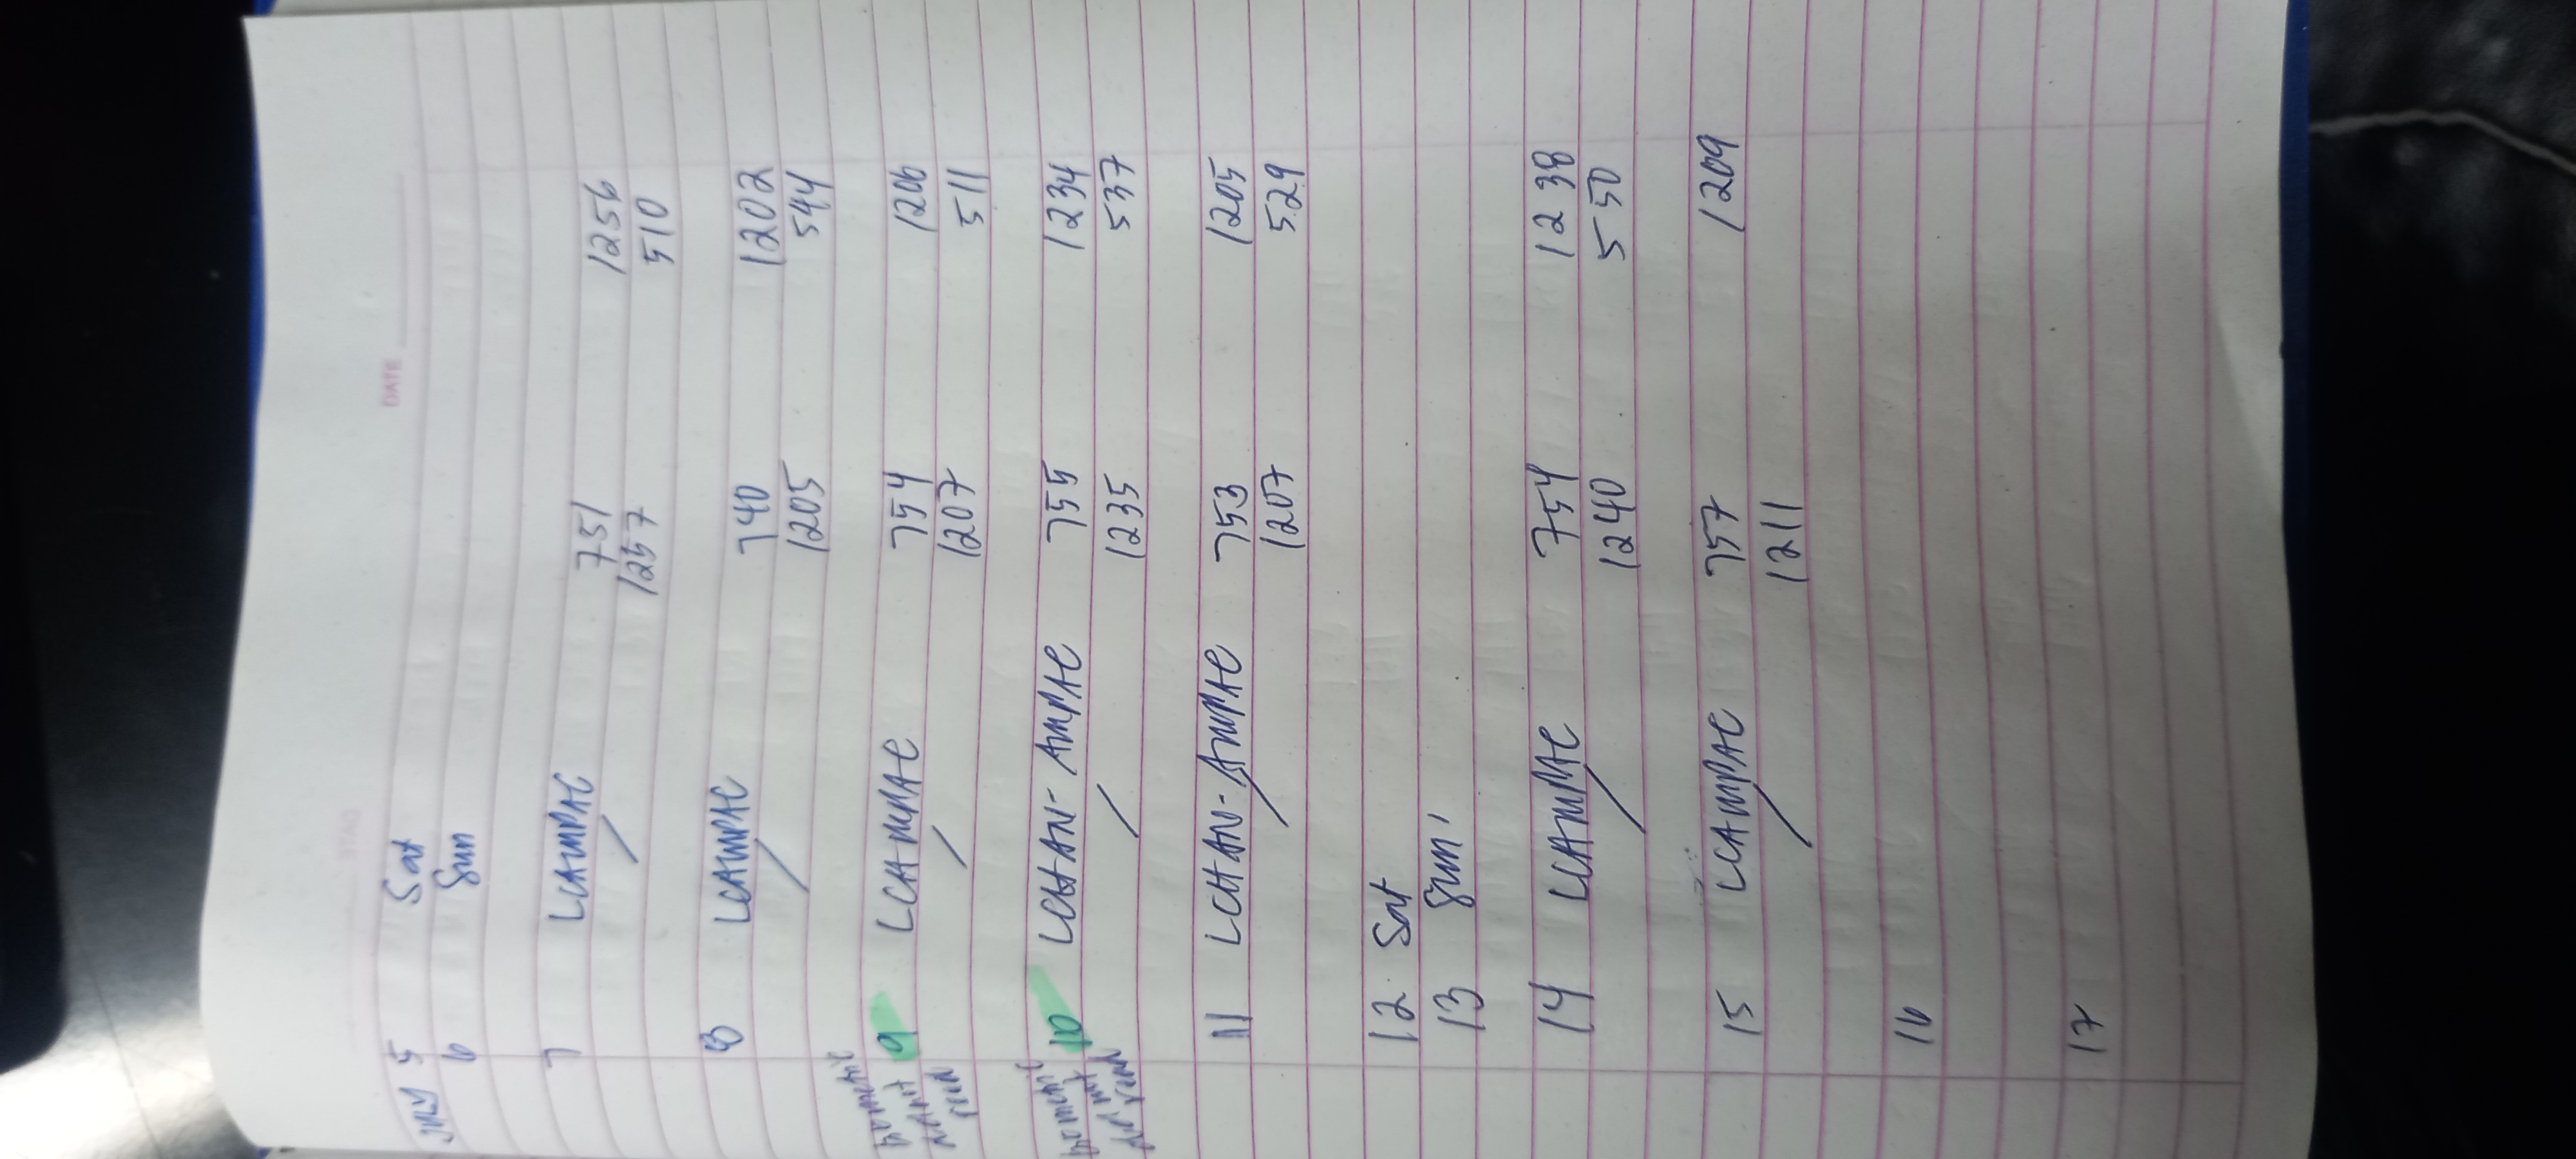 DATE
JULY 5 Sat
6 Sun
7 LCAMPAC 751 1256
1257 510
8 LCAMPAC 740 1202
1205 544
biometric 9 LCHAMPAC 754 1206
1207 511
biometric 10 LCHAN-AMPAC 755 1234
did not 1235 537
read
11 LCHAN-AMPAC 753 1205
1207 529
12 Sat
13 Sun
14 LCAMPAC 754 1238
1240 550
15 LCAMPAC 757 1209
1211
16
17